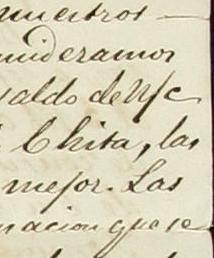 nuestros —
nsideramos
saldo de V/c
Chita, las
mejor. Las
macion que se